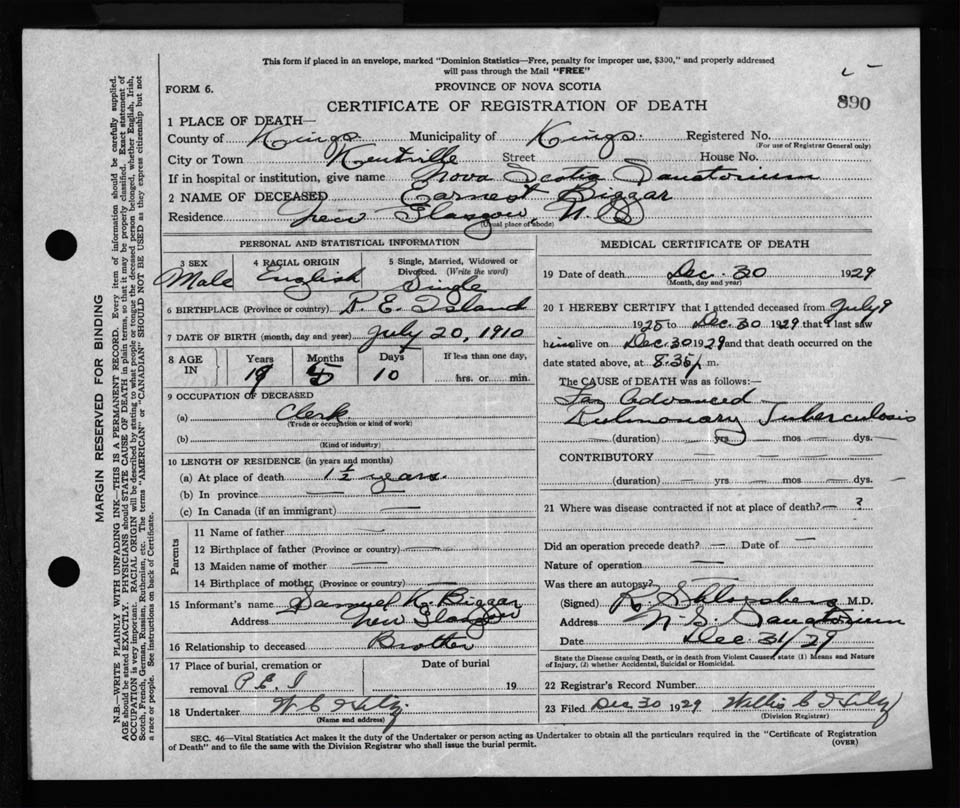 This form if placed in an envelope, marked "Dominion Statistics—Free, penalty for improper use, $300," and properly addressed
will pass through the Mail "FREE"
FORM 6.
PROVINCE OF NOVA SCOTIA
CERTIFICATE OF REGISTRATION OF DEATH
890
1 PLACE OF DEATH—
County of Kings Municipality of Kings. Registered No.
(For use of Registrar General only)
City or Town Kentville Street House No.
If in hospital or institution, give name Nova Scotia Sanatorium
2 NAME OF DECEASED Earnest Biggar
Residence New Glasgow, N.S
(Usual place of abode)
PERSONAL AND STATISTICAL INFORMATION
3 SEX 4 RACIAL ORIGIN 5 Single, Married, Widowed or Divorced. (Write the word)
Male English Single
6 BIRTHPLACE (Province or country) P. E. Island
7 DATE OF BIRTH (month, day and year) July 20, 1910
8 AGE IN Years Months Days If less than one day,
19 5 10 hrs. or min.
9 OCCUPATION OF DECEASED
(a) Clerk
(Trade or occupation or kind of work)
(b)
(Kind of industry)
10 LENGTH OF RESIDENCE (in years and months)
(a) At place of death 1 1/2 years.
(b) In province —
(c) In Canada (if an immigrant) —
Parents
11 Name of father —
12 Birthplace of father (Province or country) —
13 Maiden name of mother —
14 Birthplace of mother (Province or country) —
15 Informant's name Samuel K. Biggar
Address New Glasgow
16 Relationship to deceased Brother
17 Place of burial, cremation or removal P.E.I
Date of burial
19
18 Undertaker
(Name and address)
MEDICAL CERTIFICATE OF DEATH
19 Date of death Dec. 30 1929
(Month, day and year)
20 I HEREBY CERTIFY that I attended deceased from July 9
1928 to Dec. 30 1929 that I last saw
him alive on Dec. 30 1929 and that death occurred on the
date stated above, at 8.35 p m.
The CAUSE OF DEATH was as follows:—
Far Advanced
Pulmonary Tuberculosis
(duration) yrs mos dys.
CONTRIBUTORY —
(duration) — yrs — mos — dys. —
21 Where was disease contracted if not at place of death? — ?
Did an operation precede death? — Date of —
Nature of operation —
Was there an autopsy? —
(Signed) M.D.
Address N. S. Sanatorium
Date Dec 31/29
State the Disease causing Death, or in death from Violent Causes, state (1) Means and Nature
of Injury, (2) whether Accidental, Suicidal or Homicidal.
22 Registrar's Record Number
23 Filed Dec 30 1929 Willis C
(Division Registrar)
SEC. 46—Vital Statistics Act makes it the duty of the Undertaker or person acting as Undertaker to obtain all the particulars required in the "Certificate of Registration
of Death" and to file the same with the Division Registrar who shall issue the burial permit.
(OVER)
MARGIN RESERVED FOR BINDING
N.B.—WRITE PLAINLY WITH UNFADING INK—THIS IS A PERMANENT RECORD. Every item of information should be carefully supplied.
AGE should be stated EXACTLY. PHYSICIANS should STATE CAUSE OF DEATH in plain terms, so that it may be properly classified. Exact statement of
OCCUPATION is very important. RACIAL ORIGIN will be described by stating to what people or tongue the deceased person belonged, whether English, Irish,
Scotch, French, German, Russian, Ruthenian, etc. The terms "AMERICAN" or "CANADIAN" SHOULD NOT BE USED as they express citizenship but not
a race or people. See instructions on back of Certificate.